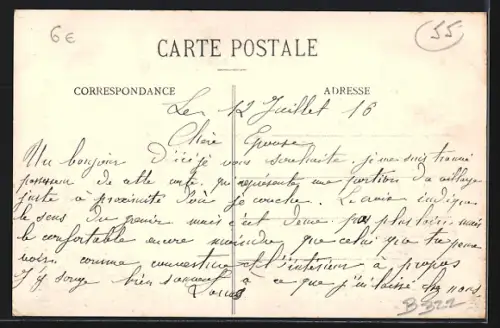 6€
55
CARTE POSTALE
CORRESPONDANCE
ADRESSE
Le 12 Juillet 16
Chère Epouse
Un bonjour D'ici je vous souhaite. je me suis trouvé
possesseur de cette carte, qui représente une portion du village
juste à proximité d'où je couche. Le avoir indique
le sens du genre mais c'est donc pas plus loin mais
le confortable encore moindre que celui que tu peux
voir comme couverture et l'intérieur à propos
J'y songe bien souvent à ce que j'ai laissé chez nous
B322